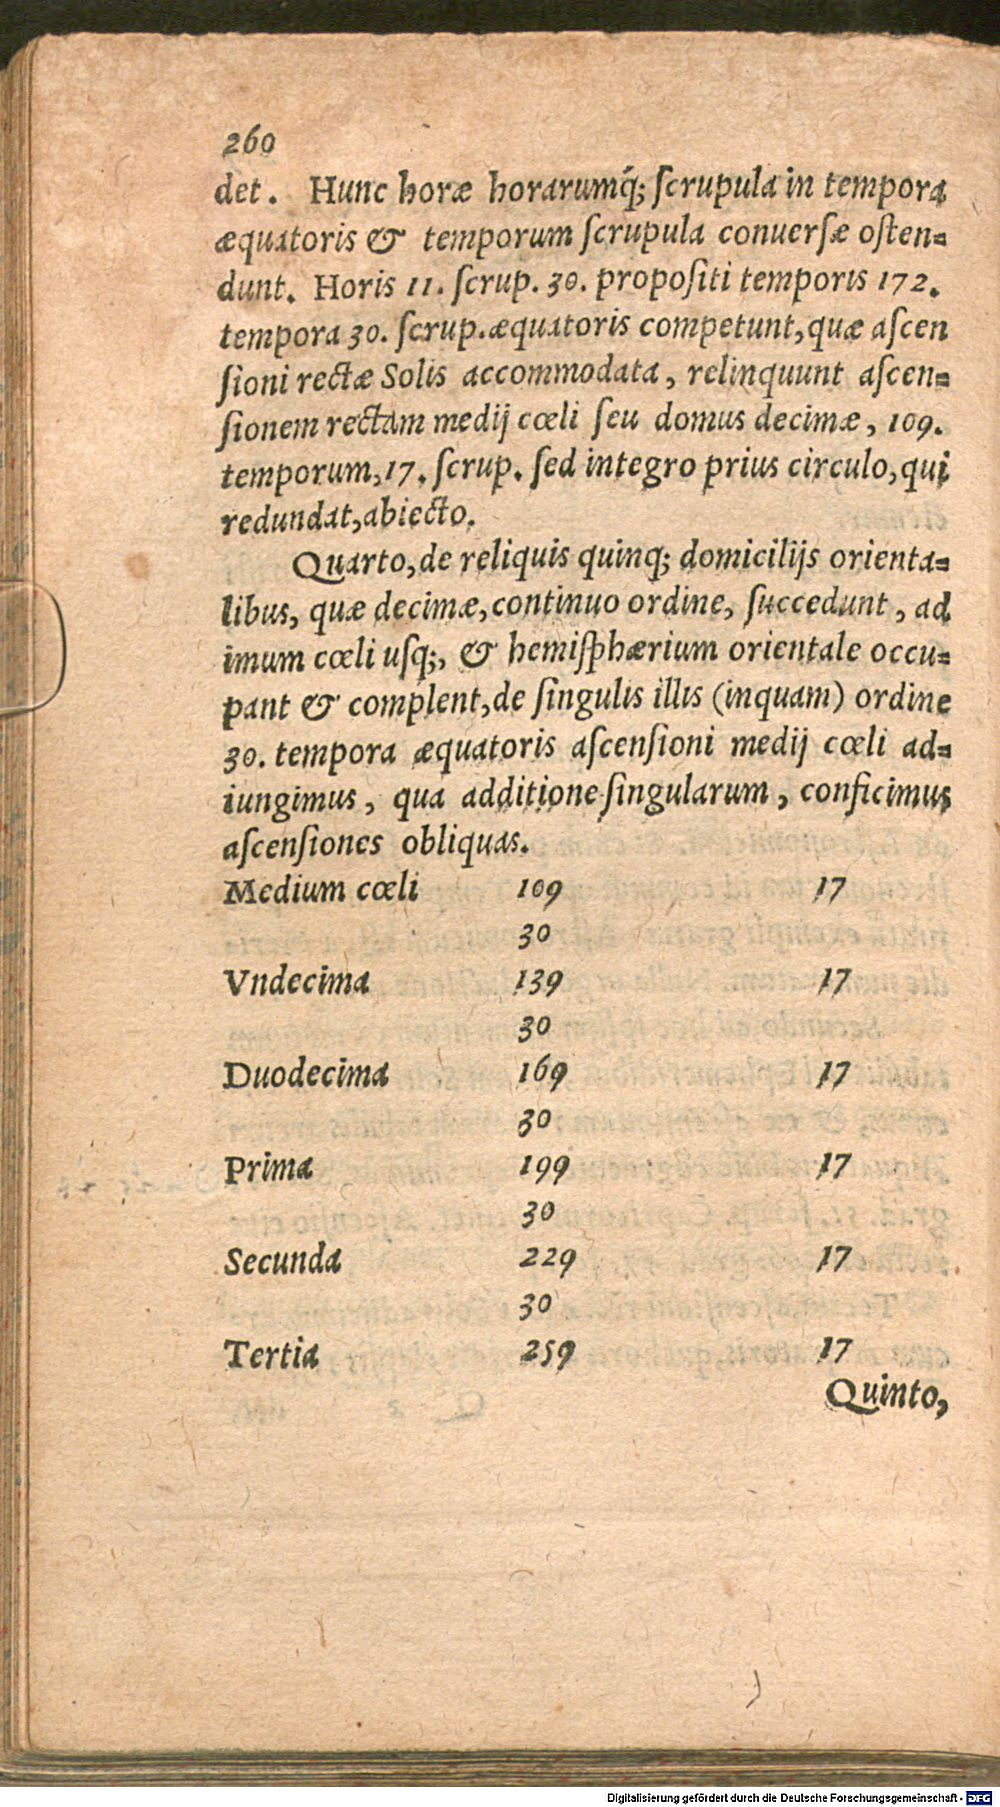 260
det. Hunc horæ horarumq́; ſcrupula in tempora
æquatoris & temporum ſcrupula conuerſæ oſten=
dunt. Horis 11. ſcrup. 30. propoſiti temporis 172.
tempora 30. ſcrup. æquatoris competunt, quæ aſcen
ſioni rectæ Solis accommodata, relinquunt aſcen=
ſionem rectam medij cœli ſeu domus decimæ, 109.
temporum, 17. ſcrup. ſed integro prius circulo, qui
redundat, abiecto.
Quarto, de reliquis quinq; domicilijs orienta=
libus, quæ decimæ, continuo ordine, ſuccedunt, ad
imum cœli uſq;, & hemiſphærium orientale occu=
pant & complent, de ſingulis illis (inquam) ordine
30. tempora æquatoris aſcenſioni medij cœli ad=
iungimus, qua additione ſingularum, conficimus
aſcenſiones obliquas.
Medium cœli 109 17
30
Vndecima 139 17
30
Duodecima 169 17
30
Prima 199 17
30
Secunda 229 17
30
Tertia 259 17
Quinto,
Digitalisierung gefördert durch die Deutsche Forschungsgemeinschaft - DFG